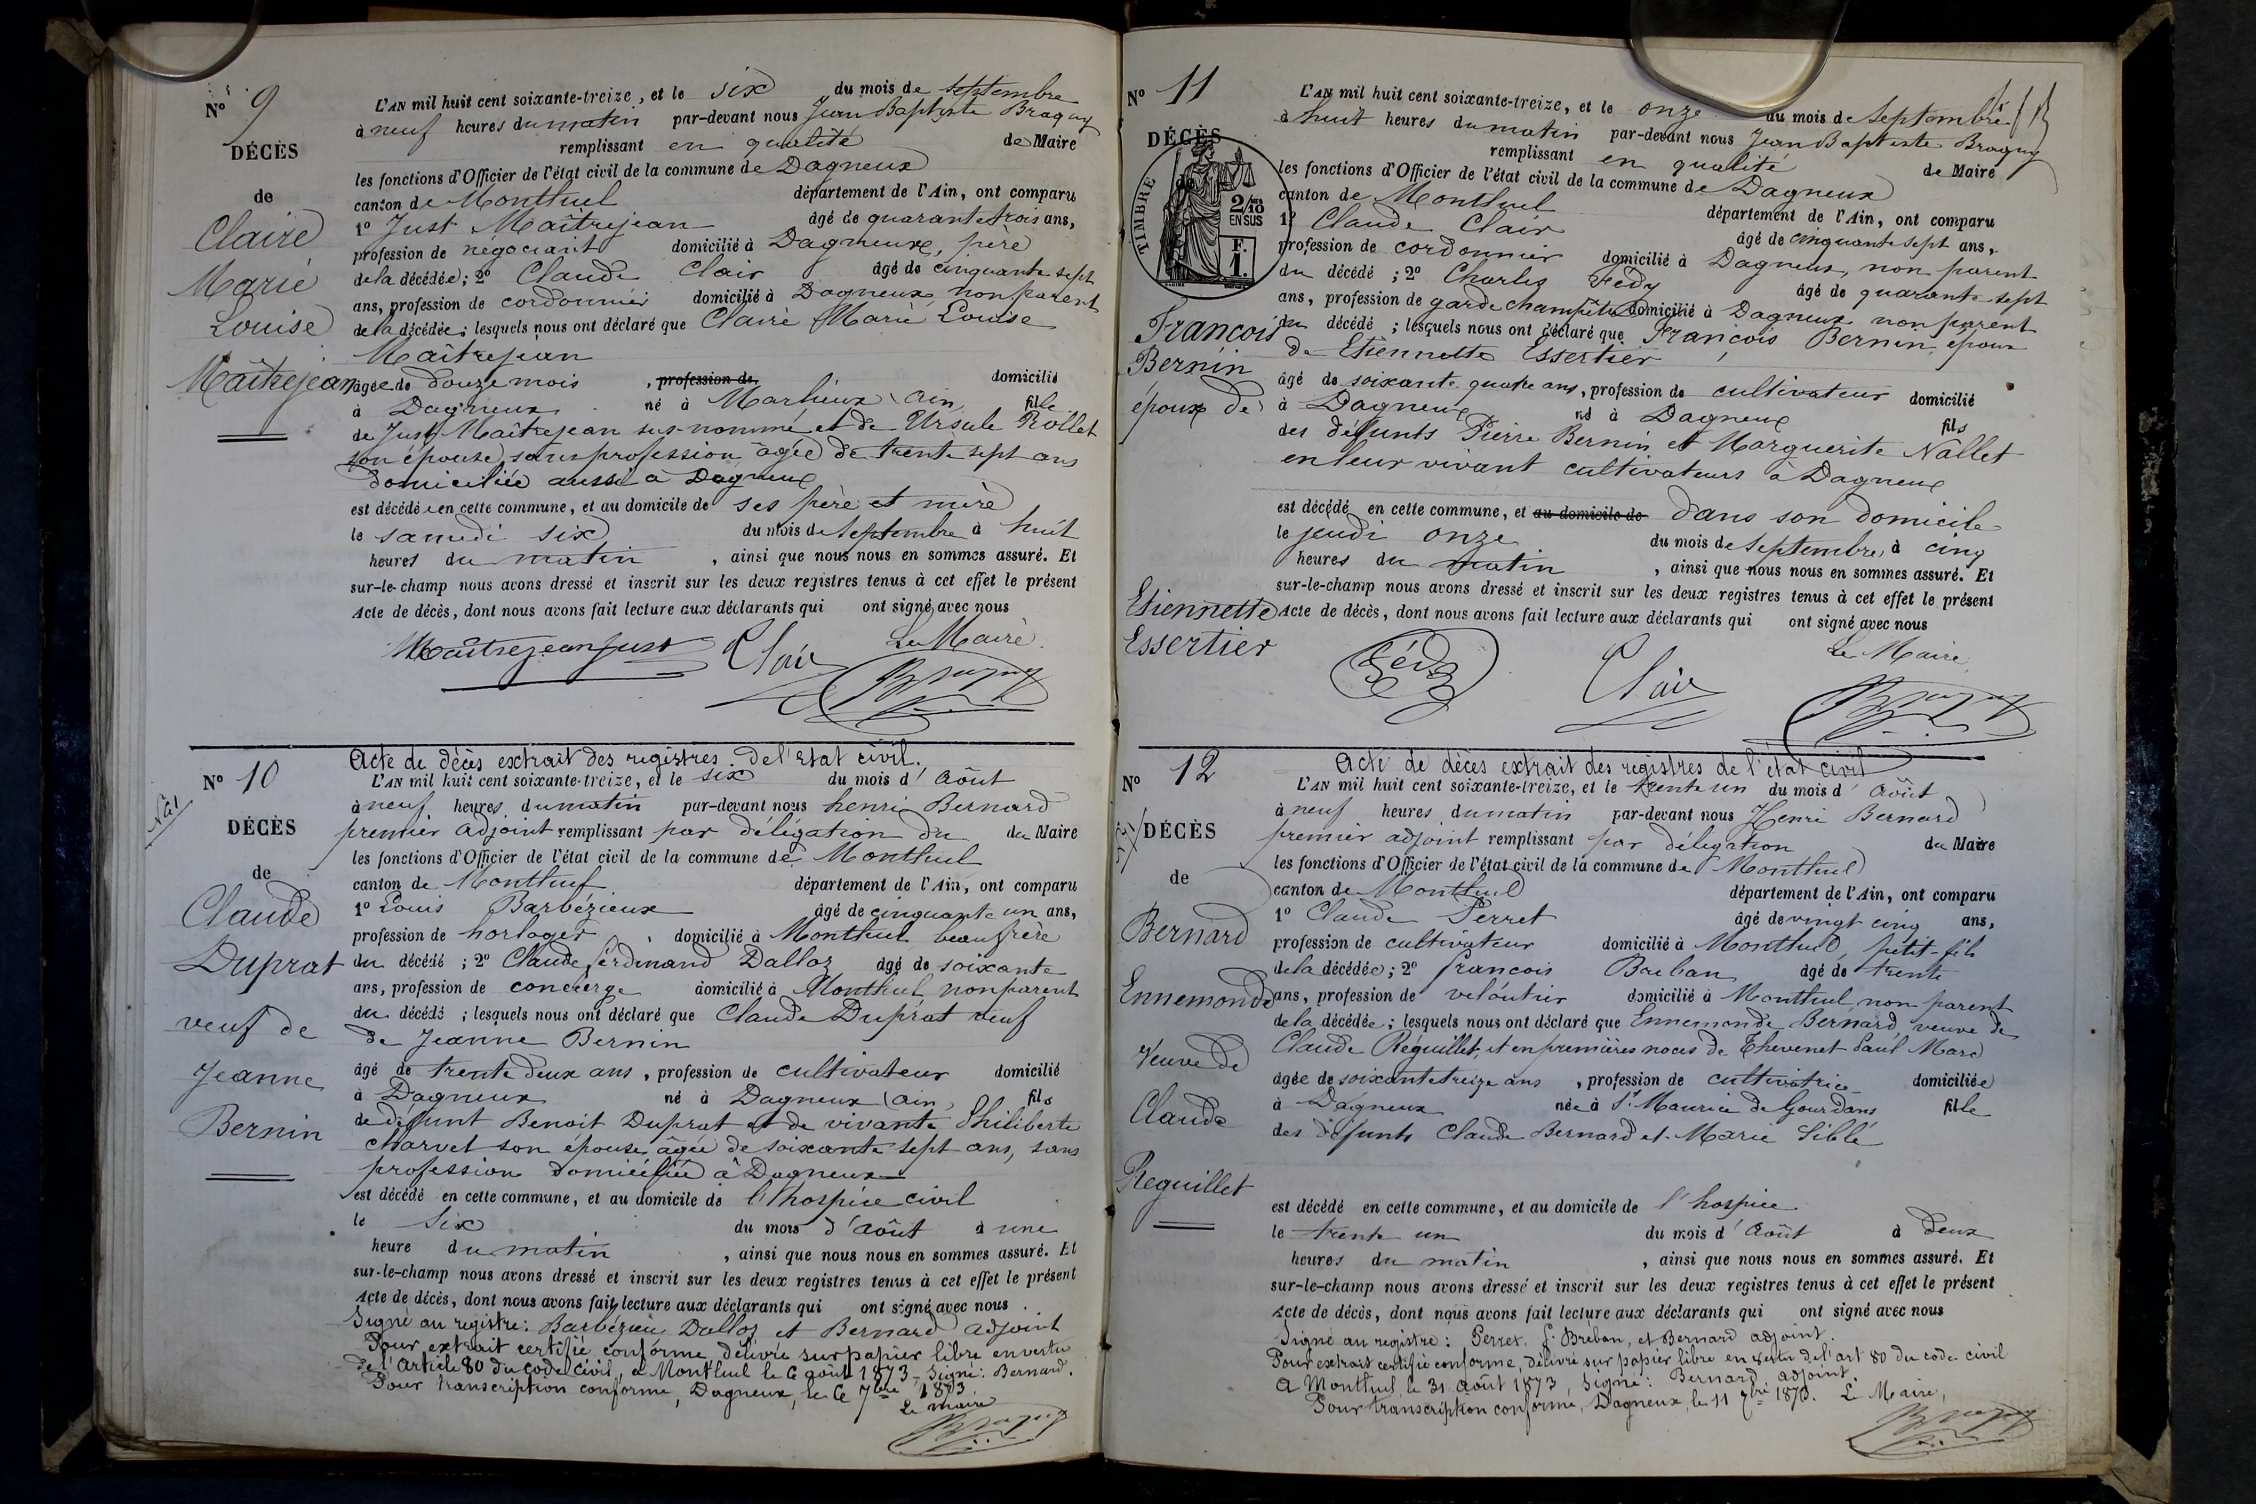 N° 9
DÉCÈS
de
Claire
Marie
Louise
Maîtrejean
L'AN mil huit cent soixante-treize, et le six du mois de septembre
à neuf heures du matin par-devant nous Jean Baptiste Braguy
remplissant en qualité de Maire
les fonctions d'Officier de l'état civil de la commune de Dagneux
canton de Montluel département de l'Ain, ont comparu
1° Just Maîtrejean âgé de quarante trois ans,
profession de négociant domicilié à Dagneux, père
de la décédée; 2° Claude Clair âgé de cinquante sept
ans, profession de cordonnier domicilié à Dagneux non parent
de la décédée; lesquels nous ont déclaré que Claire Marie Louise
Maîtrejean
âgée de douze mois, profession de domicilié
à Dagneux né à Marlieux (ain) fille
de Just Maîtrejean sus-nommé et de Ursule Rollet
son épouse, sans profession âgée de trente sept ans
domiciliée aussi à Dagneux
est décédée en cette commune, et au domicile de ses père et mère
le samedi six du mois de septembre à huit
heures du matin, ainsi que nous nous en sommes assuré. Et
sur-le-champ nous avons dressé et inscrit sur les deux registres tenus à cet effet le présent
Acte de décès, dont nous avons fait lecture aux déclarants qui ont signé avec nous
Le Maire
Maîtrejean Just Clair Braguy
N° 10
DÉCÈS
de
Claude
Duprat
veuf de
Jeanne
Bernin
Acte de décès extrait des registres de l'état civil.
L'AN mil huit cent soixante-treize, et le six du mois d'Août
à neuf heures du matin par-devant nous henri Bernard
premier adjoint remplissant par délégation du du Maire
les fonctions d'Officier de l'état civil de la commune de Montluel
canton de Montluel département de l'Ain, ont comparu
1° Louis Barbézieux âgé de cinquante un ans,
profession de horloger, domicilié à Montluel beau frère
du décédé; 2° Claude ferdinand Dalloz âgé de soixante
ans, profession de concierge domicilié à Montluel non parent
du décédé; lesquels nous ont déclaré que Claude Duprat veuf
de Jeanne Bernin
âgé de trente deux ans, profession de cultivateur domicilié
à Dagneux né à Dagneux (ain) fils
de défunt Benoit Duprat et de vivante Philiberte
Charvet son épouse âgée de soixante sept ans, sans
profession domiciliée à Dagneux
est décédé en cette commune, et au domicile de l'hospice civil
le six du mois d'Août à une
heure du matin, ainsi que nous nous en sommes assuré. Et
sur-le-champ nous avons dressé et inscrit sur les deux registres tenus à cet effet le présent
Acte de décès, dont nous avons fait lecture aux déclarants qui ont signé avec nous.
Signé au registre: Barbézieu, Dalloz et Bernard adjoint
Pour extrait certifié conforme délivré sur papier libre en vertu
de l'Article 80 du code civil, à Montluel le 6 août 1873 - Signé: Bernard.
Pour transcription conforme, Dagneux, le 6 7bre 1873
Le maire
Braguy
N° 11
DÉCÈS
TIMBRE
2/10 EN SUS
F. 1.
François
Bernin
époux de
Etiennette
Essertier
L'AN mil huit cent soixante-treize, et le onze du mois de Septembre
à huit heures du matin par-devant nous Jean Baptiste Braguy
remplissant en qualité de Maire
les fonctions d'Officier de l'état civil de la commune de Dagneux
canton de Montluel département de l'Ain, ont comparu
1° Claude Clair âgé de cinquante sept ans,
profession de cordonnier domicilié à Dagneux, non parent
du décédé; 2° Charles Fédy âgé de quarante sept
ans, profession de garde champêtre domicilié à Dagneux non parent
du décédé; lesquels nous ont déclaré que François Bernin, époux
de Etiennette Essertier
âgé de soixante quatre ans, profession de cultivateur domicilié
à Dagneux né à Dagneux fils
des défunts Pierre Bernin et Marguerite Nallet
en leur vivant cultivateurs à Dagneux
est décédé en cette commune, et au domicile de dans son domicile
le jeudi onze du mois de Septembre, à cinq
heures du matin, ainsi que nous nous en sommes assuré. Et
sur-le-champ nous avons dressé et inscrit sur les deux registres tenus à cet effet le présent
Acte de décès, dont nous avons fait lecture aux déclarants qui ont signé avec nous
Le Maire
Fédy Clair Braguy
N° 12
DÉCÈS
de
Bernard
Ennemonde
Veuve de
Claude
Reguillet
Acte de décès extrait des registres de l'état civil
L'AN mil huit cent soixante-treize, et le trente un du mois d'Août
à neuf heures du matin par-devant nous Henri Bernard
premier adjoint remplissant par délégation du Maire
les fonctions d'Officier de l'état civil de la commune de Montluel
canton de Montluel département de l'Ain, ont comparu
1° Claude Perret âgé de vingt cinq ans,
profession de cultivateur domicilié à Montluel, petit-fils
de la décédée; 2° françois Breban âgé de trente
ans, profession de veloutier domicilié à Montluel non parent
de la décédée; lesquels nous ont déclaré que Ennemonde Bernard, veuve de
Claude Réguillet, et en premières noces de Thevenet Paul Marc
âgée de soixante treize ans, profession de cultivatrice domiciliée
à Dagneux née à St Maurice de Gourdans fille
des défunts Claude Bernard et Marie Siblé
est décédé en cette commune, et au domicile de l'hospice
le trente un du mois d'Août à deux
heures du matin, ainsi que nous nous en sommes assuré. Et
sur-le-champ nous avons dressé et inscrit sur les deux registres tenus à cet effet le présent
Acte de décès, dont nous avons fait lecture aux déclarants qui ont signé avec nous
Signé au registre: Perret. f. Breban, et Bernard adjoint.
Pour extrait certifié conforme, délivré sur papier libre en vertu de l'art 80 du code civil
A Montluel, le 31 Août 1873, Signé: Bernard adjoint.
Pour transcription conforme, Dagneux, le 11 7bre 1873. Le Maire,
Braguy